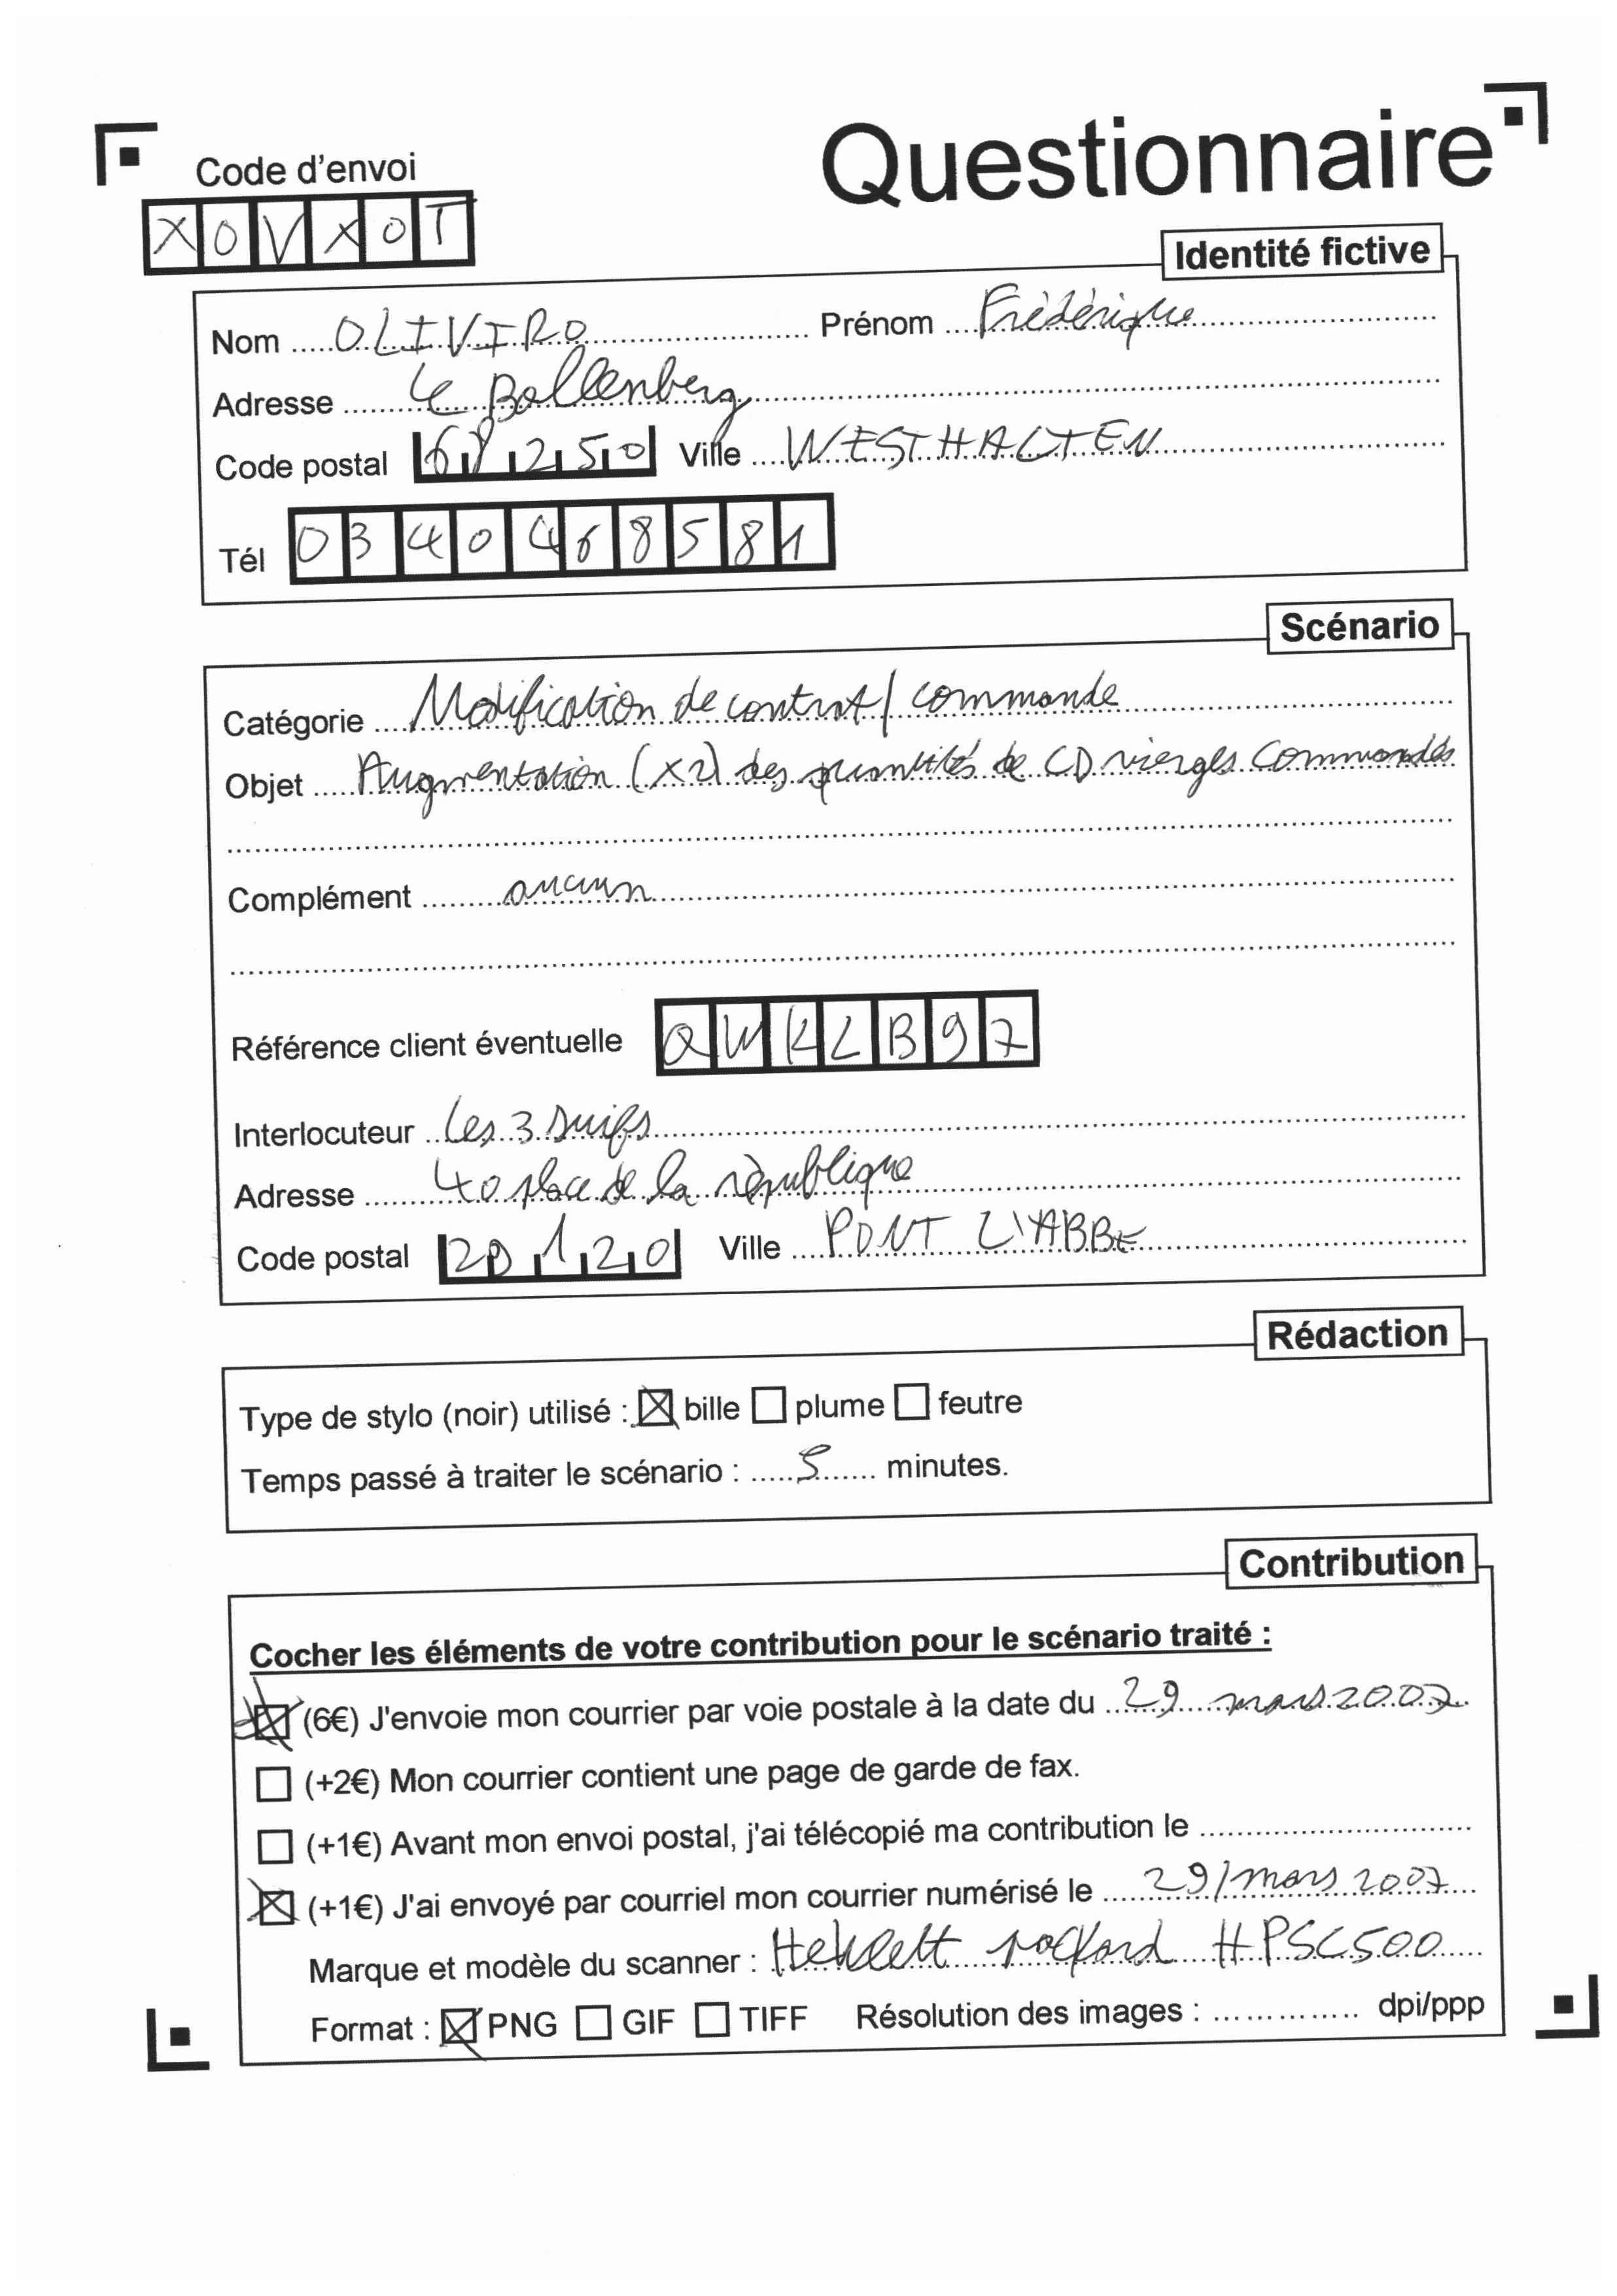 Questionnaire
Code d'envoi
XOVXOT
Identité fictive
Nom OLIVIRO Prénom Frédérique
Adresse Le Bollenberg
Code postal 68250 Ville WESTHALTEN
Tél 0340468581
Scénario
Catégorie Modification de contrat/commande
Objet Augmentation (x2) des quantités de CD vierges commandés
Complément aucun
Référence client éventuelle QWKLB97
Interlocuteur Les 3 suifs
Adresse 40 place de la république
Code postal 29120 Ville PONT L'ABBE
Rédaction
Type de stylo (noir) utilisé : bille plume feutre
Temps passé à traiter le scénario : 5 minutes.
Contribution
Cocher les éléments de votre contribution pour le scénario traité :
(6€) J'envoie mon courrier par voie postale à la date du 29 mars 2007
(+2€) Mon courrier contient une page de garde de fax.
(+1€) Avant mon envoi postal, j'ai télécopié ma contribution le
(+1€) J'ai envoyé par courriel mon courrier numérisé le 29/mars 2007
Marque et modèle du scanner : Hewlett packard HPSC500
Format : PNG GIF TIFF Résolution des images : dpi/ppp